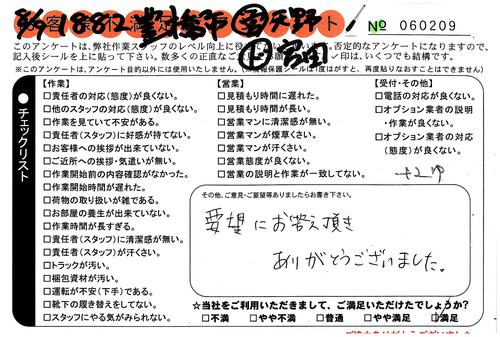 8/9 18812 豊橋市 天野
宮田
No 060209
このアンケートは、弊社作業スタッフのレベル向上に役
否定的なアンケートになりますので、
記入後シールを上に貼って下さい。数多くの正直なご意
印は、いくつでも結構です。
※このアンケートは、アンケート目的以外には使用いたしません。(※情報保護シールは1度はがすと、再度貼りなおすことはできません)
●チェックリスト
【作業】
□責任者の対応(態度)が良くない。
□他のスタッフの対応(態度)が良くない。
□作業を見ていて不安がある。
□責任者(スタッフ)に好感が持てない。
□お客様への挨拶が出来ていない。
□ご近所への挨拶・気遣いが無い。
□作業開始前の内容確認がなかった。
□作業開始時間が遅れた。
□荷物の取り扱いが雑である。
□お部屋の養生が出来ていない。
□作業時間が長すぎる。
□責任者(スタッフ)に清潔感が無い。
□責任者(スタッフ)が汗くさい。
□トラックが汚い。
□梱包資材が汚い。
□運転が不安(下手)である。
□靴下の履き替えをしてない。
□スタッフにやる気がみられない。
【営業】
□見積もり時間に遅れた。
□見積もり時間が長い。
□営業マンに清潔感が無い。
□営業マンが煙草くさい。
□営業マンが汗くさい。
□営業態度が良くない。
□営業の説明と作業が一致してない。
【受付・その他】
□電話の対応が良くない。
□オプション業者の説明
・作業が良くない。
□オプション業者の対応
(態度)が良くない。
その他、ご意見・ご要望等ありましたらお書き下さい。
要望にお答え頂き
ありがとうございました。
☆当社をご利用いただきまして、ご満足いただけたでしょうか?
□不満 □やや不満 □普通 □やや満足 □満足